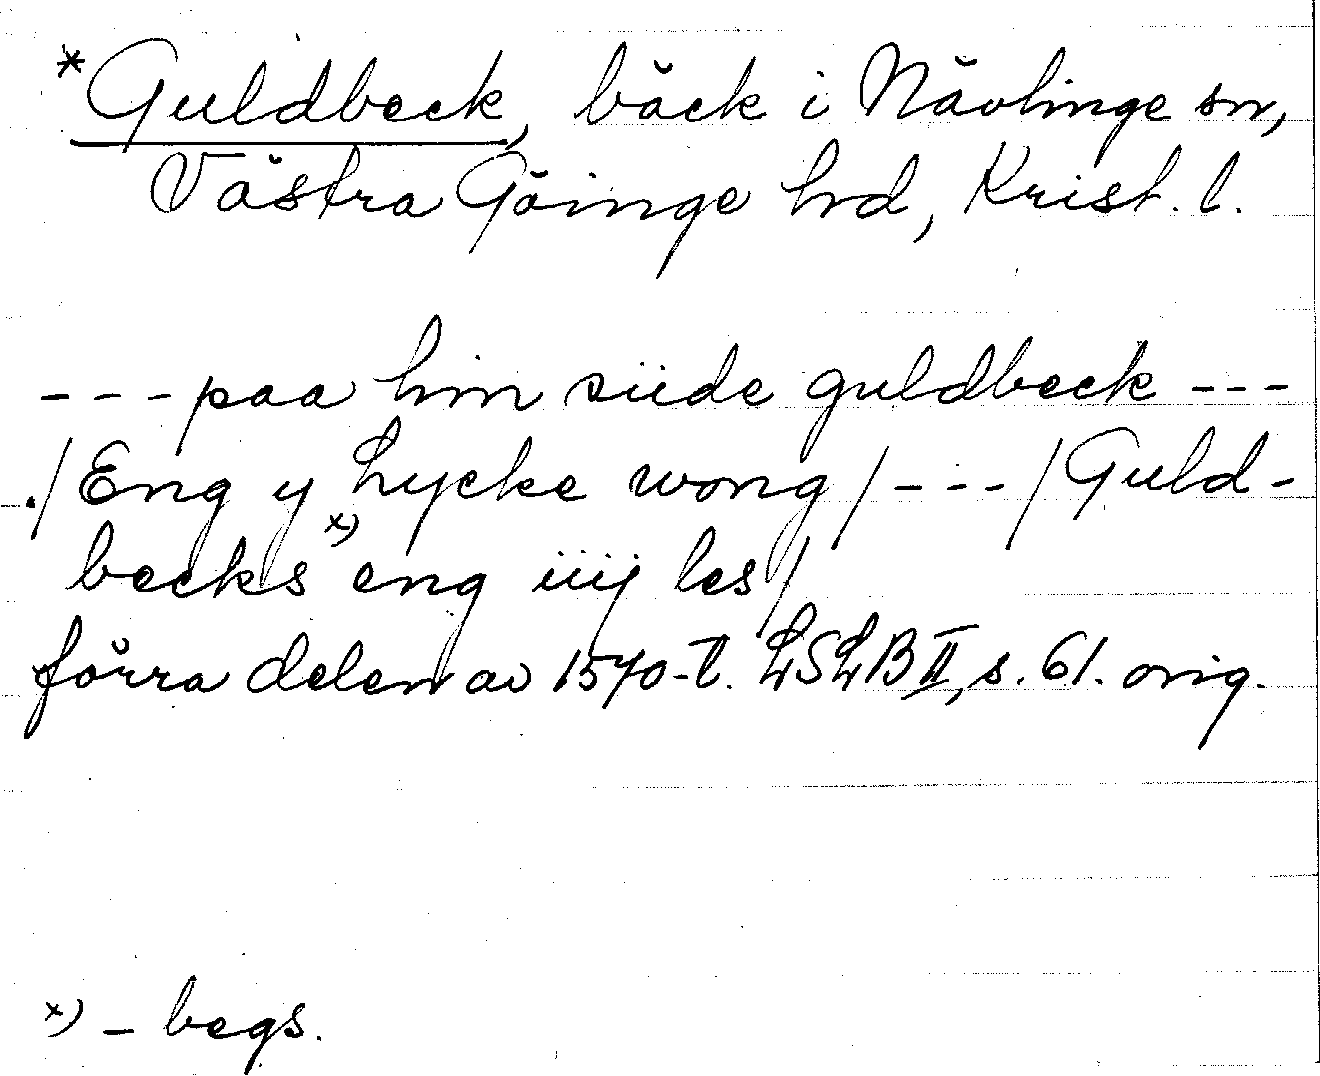 *Guldbeck, bäck i Nävlinge sn,
Västra Göinge hd, Krist. l.
--- paa hin siide guldbeck ---
./Eng y Lycke wong/---/Guld-
becks x) eng iiij les/
förra delen av 1570-t. LSLB II, s. 61. orig.
x) - begs.